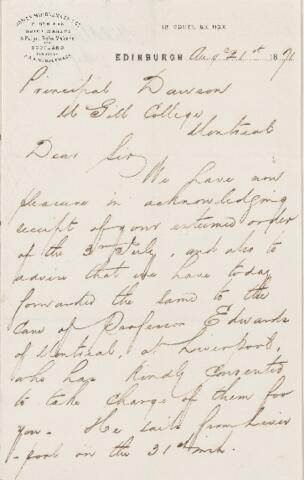 EDINBURGH Augt 21st 1871
Principal Dawson
McGill College
Montreal
Dear Sir
We have now
pleasure in acknowledging
receipt of your esteemed order
of the 3rd July, and also to
advise that we have today
forwarded the same to the
care of Professor Edwards
of Montreal, at Liverpool,
who has kindly consented
to take charge of them for
you. He sails from Liver
-pool on the 31st inst.